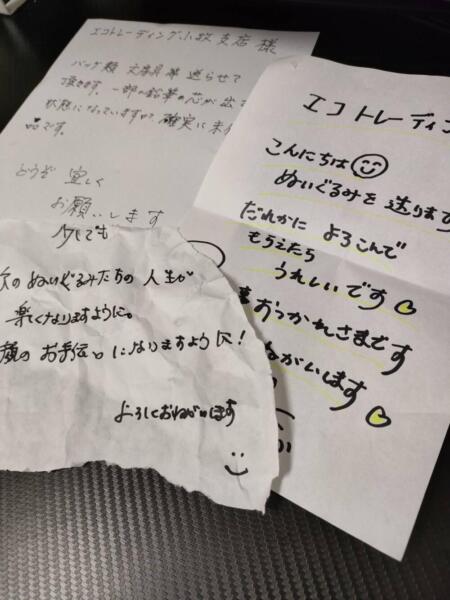 エコトレーディング小牧支店 様
バッグ類 文房具等 送らせて
頂きます。一部の鉛筆の芯が出て
状態になっていますが 確実に未
品です。
どうぞ 宜しく
お願いします
少しでも
次のぬいぐるみたちの 人生が
楽しくなりますように。
顔の お手伝いになりますように!
よろしくおねがいします
エコトレーディン
こんにちは
ぬいぐるみを 送ります
だれかに よろこんで
もらえたら
うれしいです
おつかれさまです
ながいします